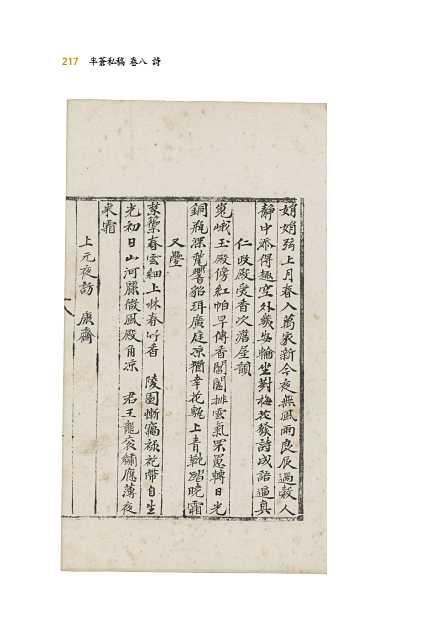 217 半蒼私稿 卷八 詩
娟娟弱上月春入萬家新今夜無風雨良辰過穀人
靜中添得趣空外幾安輪坐對梅花發詩成語逼真
仁政殿受香次濯屋韻
嵬峨玉殿傍紅帕早傳香閶闔排雲氣罘罳轉日光
銅瓶深 響貂珥廣庭凉猶幸花甎上青靴踏曉霜
又疊
紫藥春雲細上林春竹香 陵園慚 祿花帶自生
光初日山河麗微風殿角凉 君王龍袞繡應薄夜
來霜
上元夜訪 庚齋